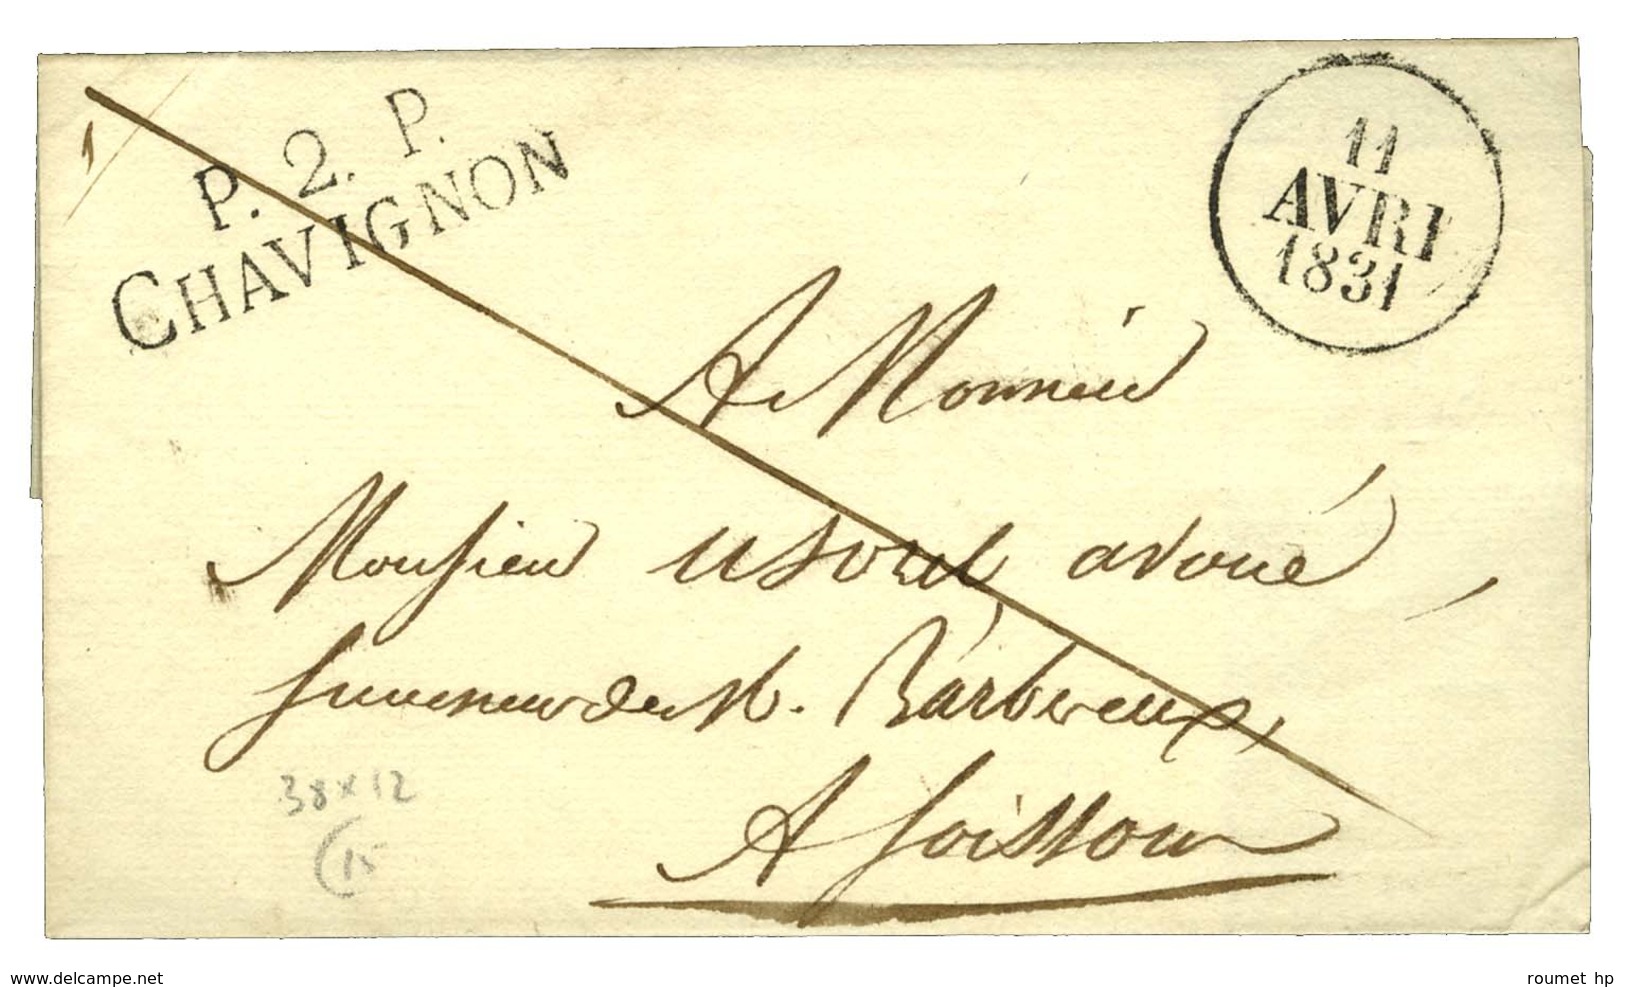 1
P. 2. P.
CHAVIGNON
11
AVRI
1831
A Monsieur
Monsieur avoué,
Successeur de M. Barbereux,
A Soissons
38 x 12
(15
www.delcampe.net
roumet hp